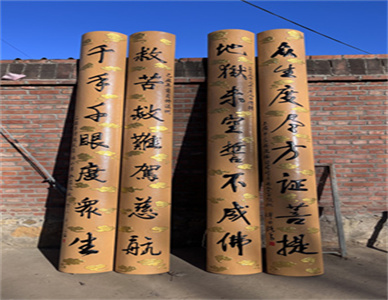 众生度尽方証菩提
地獄未空誓不成佛
救苦救難駕慈航
千手千眼度衆生